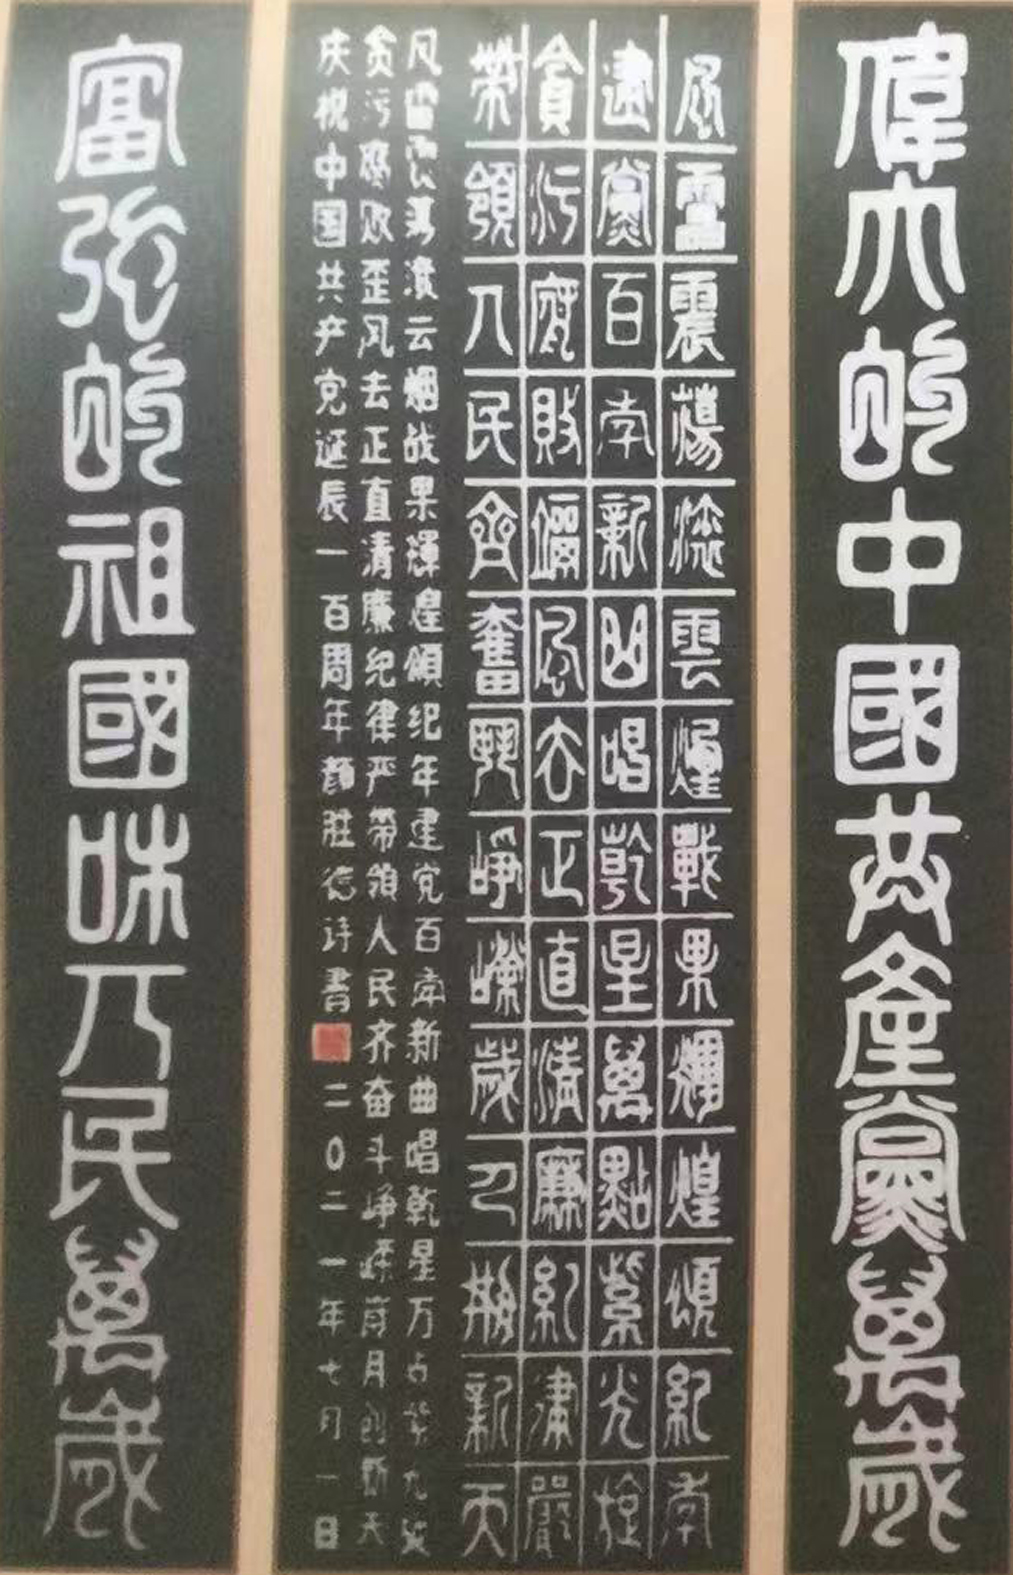 偉大的中國共產黨萬歲
風雷震蕩滾雲煙戰果輝煌頌紀年
建黨百年新曲唱乾星萬點紫光旋
貪污腐敗歪風去正直清廉紀律嚴
帶領人民齊奮鬥崢嶸歲月創新天
风雷震荡滚云烟战果輝煌頌纪年建党百年新曲唱乾星万点紫光旋
贪污腐败歪风去正直清廉纪律严带领人民齐奋斗峥嵘岁月创新天
庆祝中国共产党诞辰一百周年颜胜德诗書二〇二一年七月一日
富强的祖國咊人民萬歲